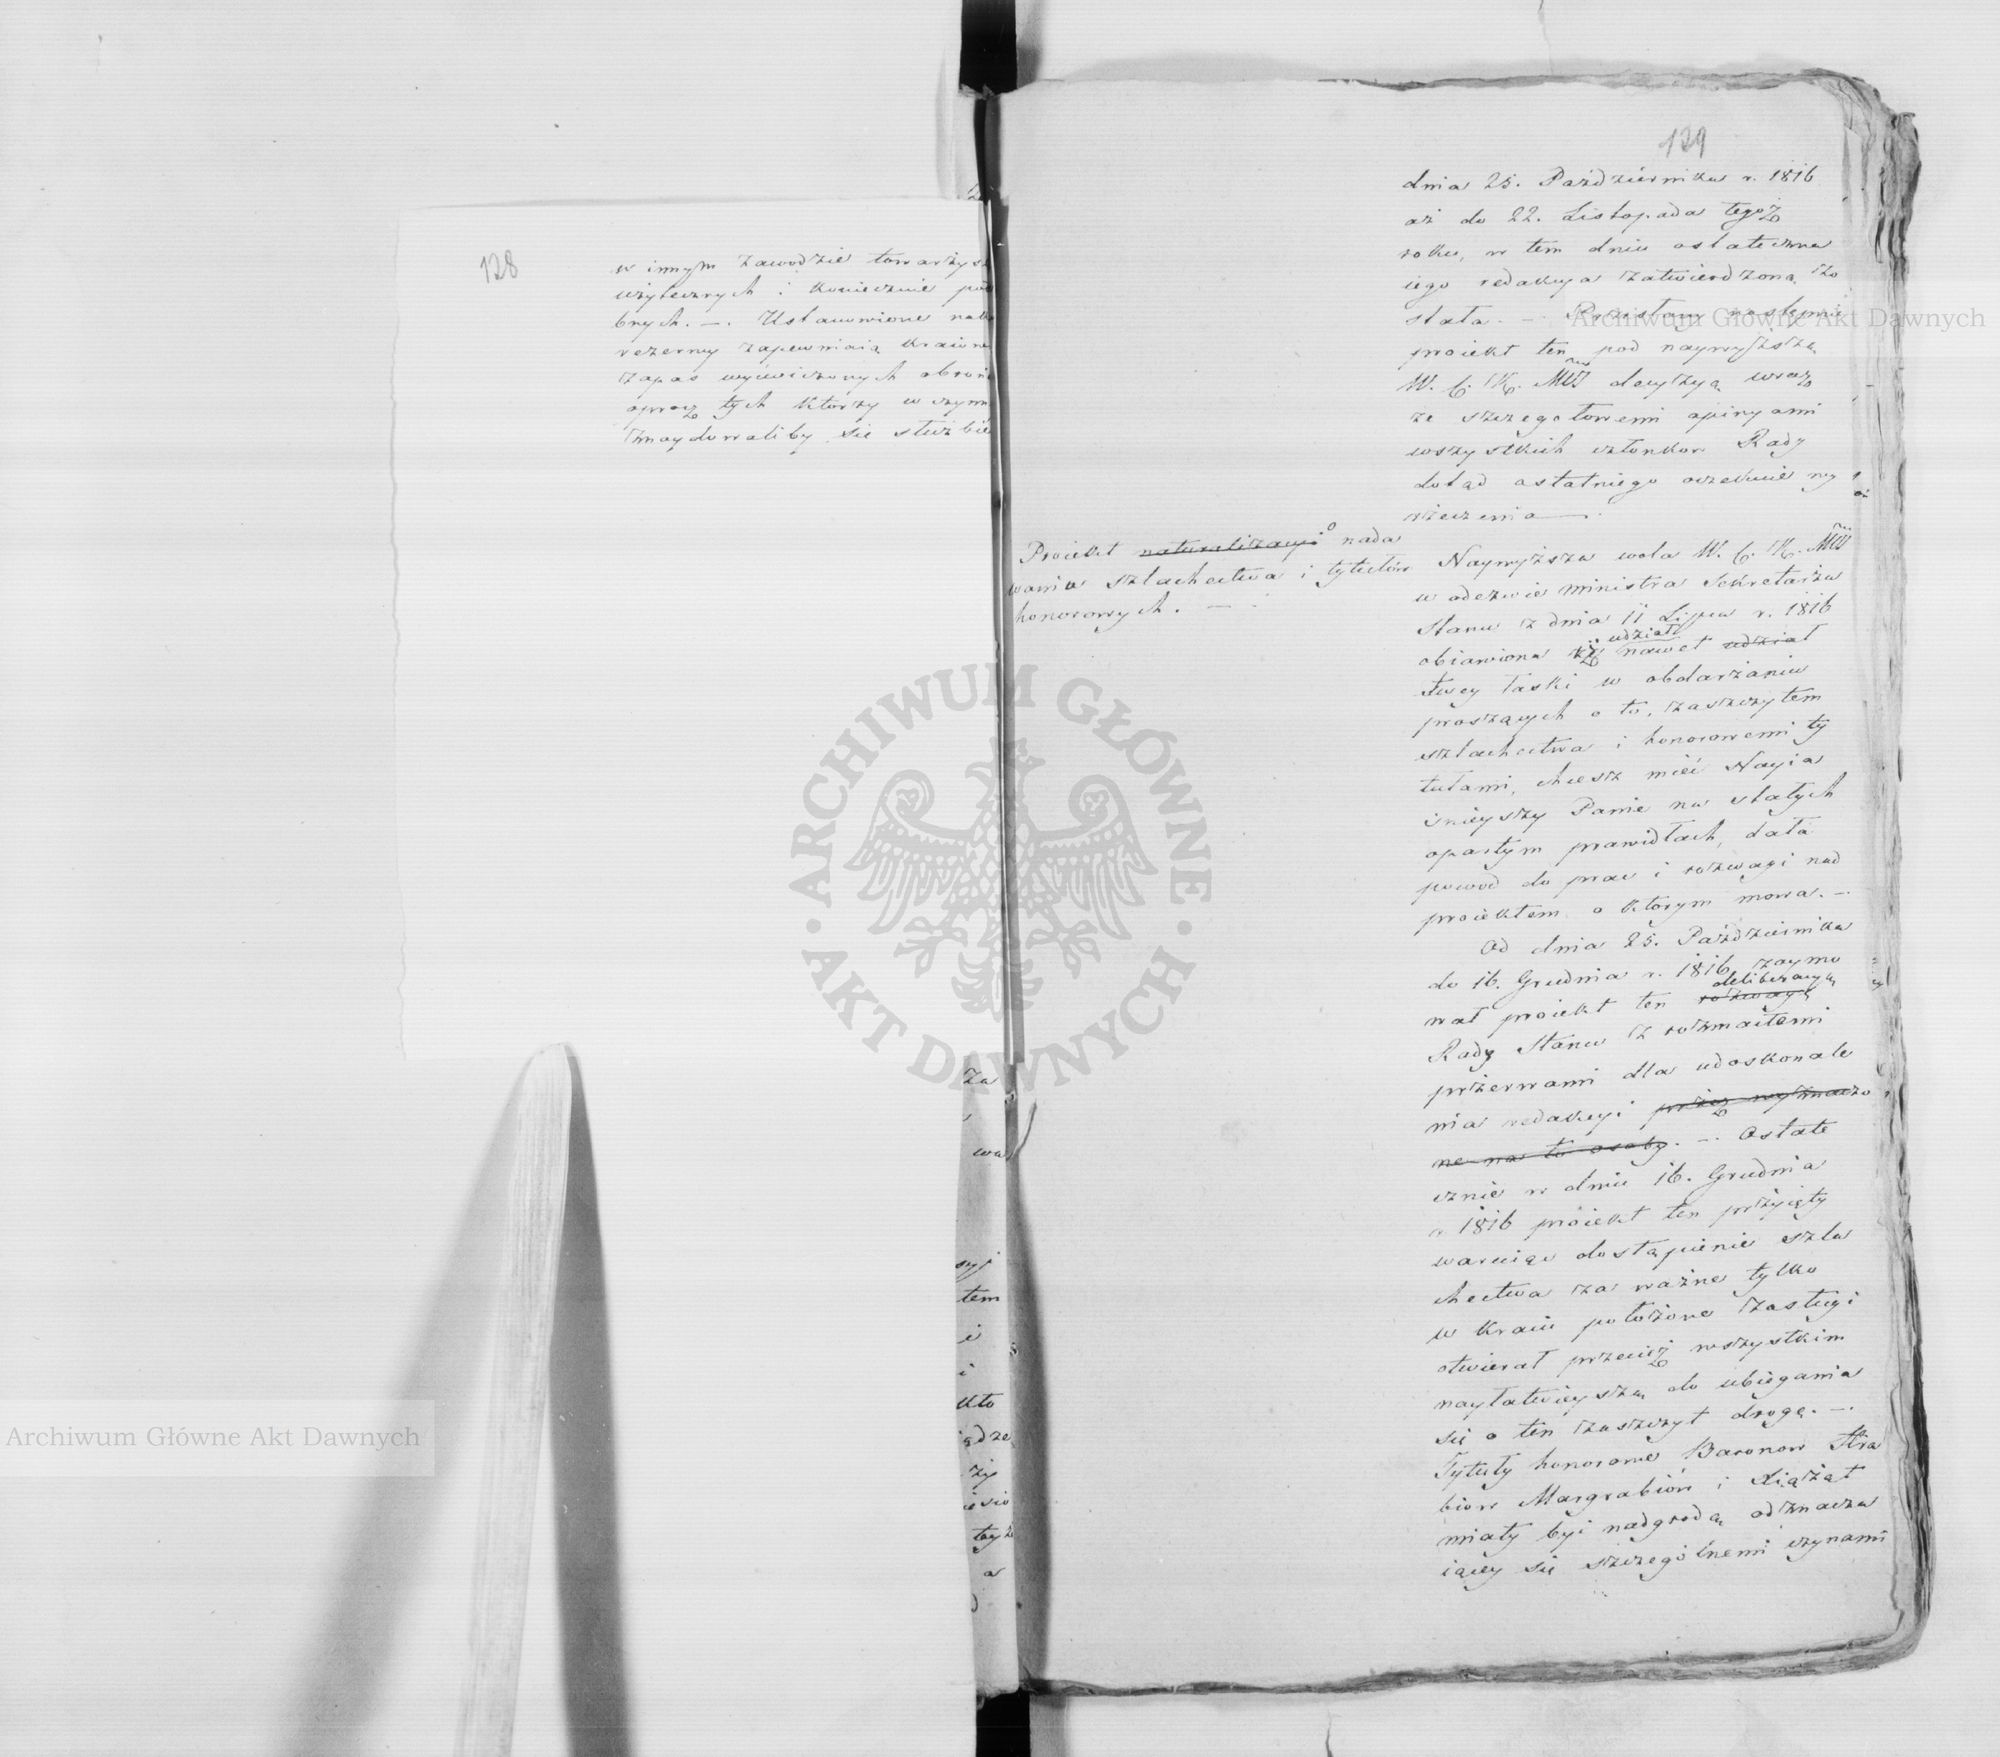 128
w innym zawodzie towarzysz
użytecznych i koniecznie po
bnych. —. Ustanowione
rezerwy zapewniaią kraiowi
zapas wyćwiczonych obroń
oprocz tych którzy w czynn
znaydowaliby się służbie
129
dnia 25. Października r. 1816
aż do 22. Listopada tegoż
roku, w tem dniu ostateczna
iego redakcya zatwierdzona zo
stała. — Przesłany następnie
proiekt ten pod naywyższą
W. C. K. Mći decyzyą wraz
ze szczegołowemi opinyami
wszystkich członkow Rady
dotąd ostatniego oczekuie wy
rzeczenia —.
Proiekt naturalizacyi o nada
waniu szlachectwa i tytułów
honorowych. —
Naywyższa wola W. C. K. Mći
w odezwie ministra Sekretarza
Stanu z dnia 11 Lipca r. 1816
udział
obiawiona iż nawet udział
Twey łaski w obdarzaniu
proszących o to, zaszczytem
szlachectwa i honorowemi ty
tułami, chcesz mieć Nayia
śnieyszy Panie na stałych
opartym prawidłach, dała
powod do prac i rozwagi nad
proiektem o ktorym mowa. —
Od dnia 25. Października
do 16. Grudnia r. 1816 zaymo
deliberacyą
wał proiekt ten rozwagę
Rady Stanu z rozmaitemi
przerwami dla udoskonale
nia redakcyi przez wyznaczo
ne na to osoby. —. Ostate
cznie w dniu 16. Grudnia
r. 1816 proiekt ten przyięty
waruiąc dostąpienie szla
chectwa za ważne tylko
w kraiu położone zasługi
otwierał przecież wszystkim
nayłatwieyszą do ubiegania
się o ten zaszczyt drogę. —.
Tytuły honorowe Baronow Hra
biow Margrabiów i Xiążąt
miały być nadgrodą odznacza
iącey się szczególnemi czynami
Archiwum Główne Akt Dawnych
Archiwum Główne Akt Dawnych
· ARCHIWUM GŁÓWNE · AKT DAWNYCH
za
wa
tem
i
i
kto
a